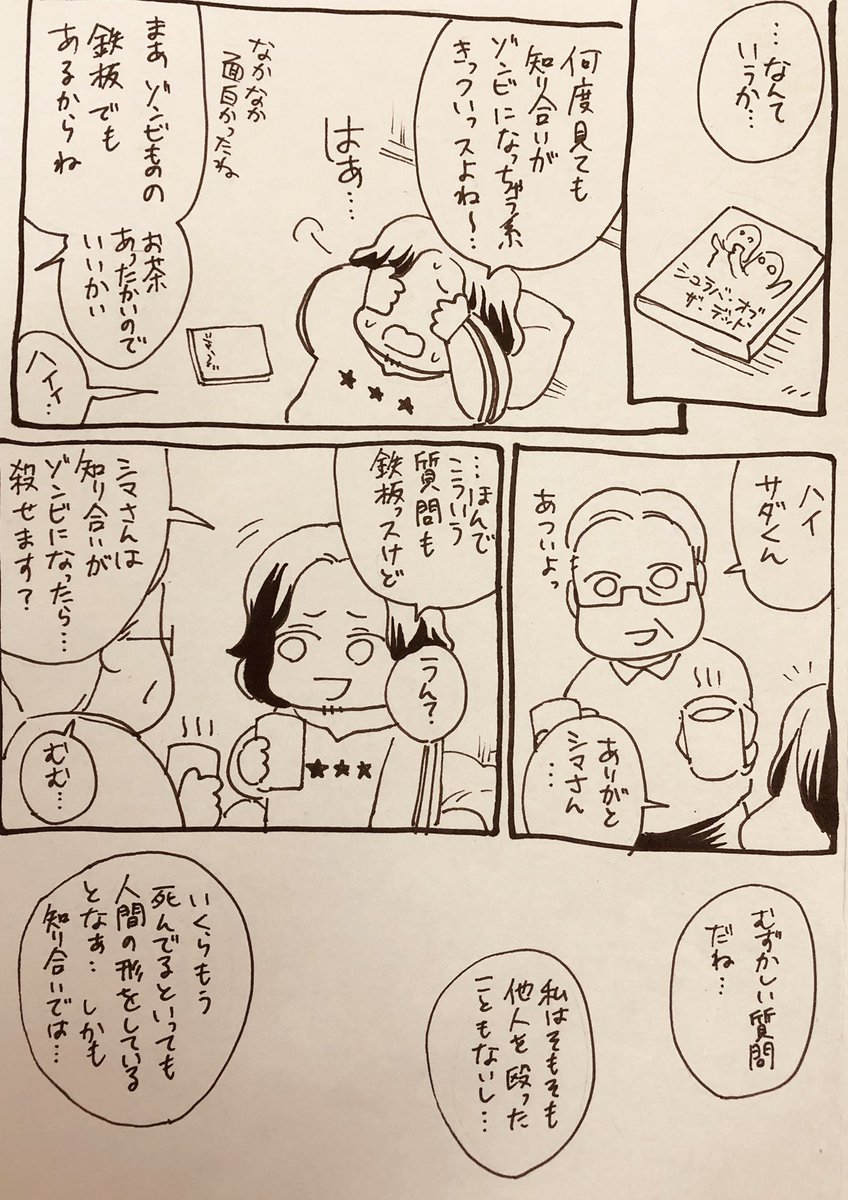 …なんて
いうか…
シュラバ・オブ
ザ・デッド
何度見ても
知り合いが
ゾンビになっちゃう系
きっついっスよね〜…
はぁ…
なかなか
面白かったね
まあ ゾンビものの
鉄板でも
あるからね
お茶
あったかいので
いいかい
ハイィ…
ハイ
サダくん
あついよっ
ありがと
シマさん
…
…ほんで
こういう
質問も
鉄板っスけど
うん？
シマさんは
知り合いが
ゾンビになったら…
殺せます？
むむ…
むずかしい質問
だね…
私はそもそも
他人を殴った
こともないし…
いくらもう
死んでるといっても
人間の形をしている
となぁ… しかも
知り合いでは…